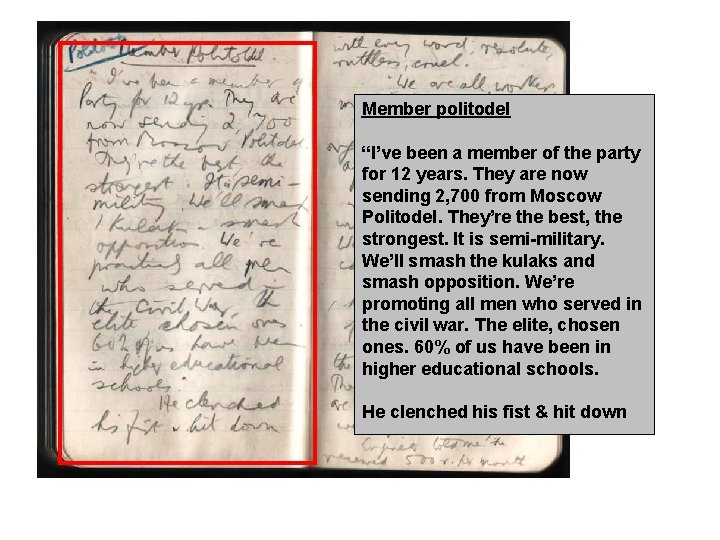 Politodel Member Politotdel.
"I've been a member of
Party for 12 yrs. They are
now sending 2,700
from Moscow Politodel.
They're the best, the
strongest. It is semi-
military. We'll smash
kulaks & smash
opposition. We're
all men
who served in
the Civil War, the
elite chosen ones.
60% of us have been
in higher educational
schools."
He clenched
his fist & hit down
with every word, resolute,
ruthless, cruel.
"We are all workers
Engineer told me he
received 500 r. per month
Member politodel
“I’ve been a member of the party
for 12 years. They are now
sending 2, 700 from Moscow
Politodel. They’re the best, the
strongest. It is semi-military.
We’ll smash the kulaks and
smash opposition. We’re
promoting all men who served in
the civil war. The elite, chosen
ones. 60% of us have been in
higher educational schools.
He clenched his fist & hit down